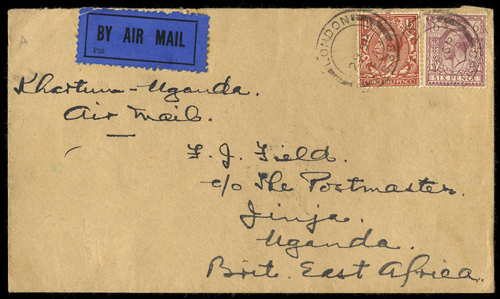 BY AIR MAIL
LONDON
SIX PENCE
A
Khartum-Uganda.
Air Mail.
F. J. Field.
c/o The Postmaster,
Jinja.
Uganda.
Brit. East Africa.